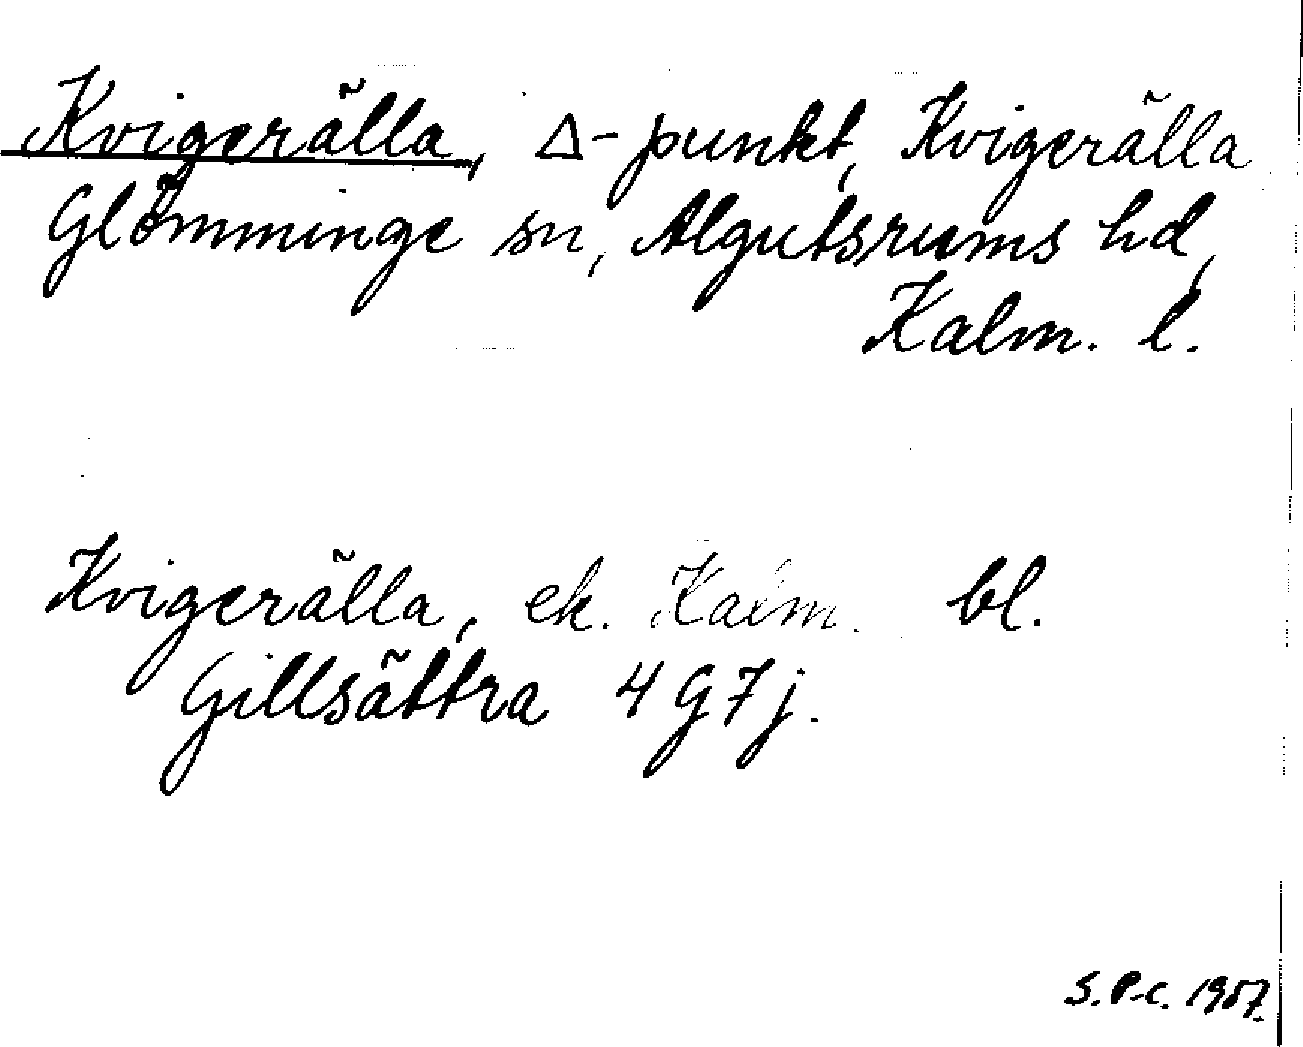 Kvigerälla, Δ-punkt, Kvigerälla
Glömminge sn, Algutsrums hd,
Kalm. l.
Kvigerälla, ek. Kalm. bl.
Gillsättra 4 G 7 j.
S.P-c. 1957.